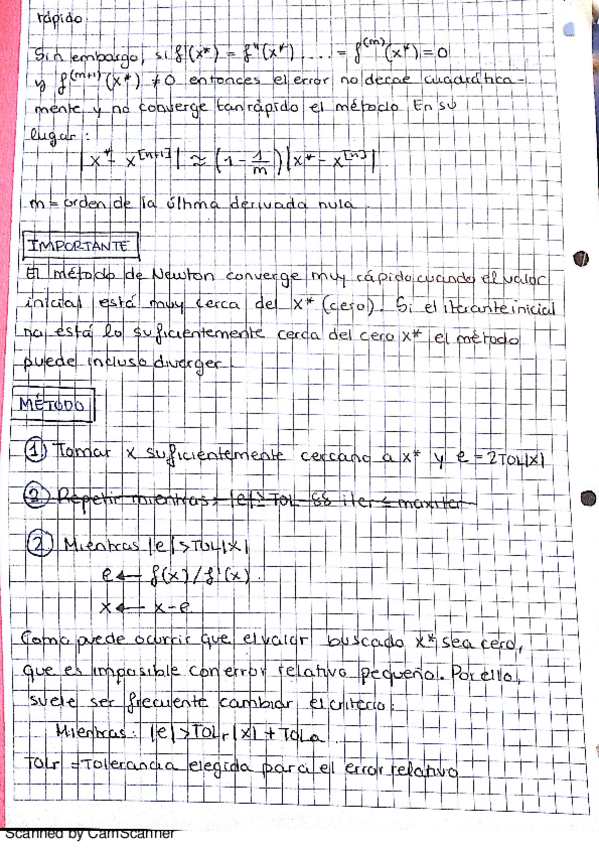 rápido.
Sin embargo, si f'(x*) = f''(x*) .... = f^(m)(x*) = 0
y f^(m+1)(x*) ≠ 0 entonces el error no decae cuadrática-
mente y no converge tan rápido el método. En su
lugar:
|x* - x^[n+1]| ≈ (1 - 1/m) |x* - x^[n]|
m = orden de la última derivada nula
IMPORTANTE
El método de Newton converge muy rápido cuando el valor
inicial está muy cerca del x* (cero). Si el iterante inicial
no está lo suficientemente cerca del cero x* el método
puede incluso diverger.
MÉTODO
① Tomar x suficientemente cercano a x* y e = 2TOL|x|
② Repetir mientras: |e| ≥ TOL && iter ≤ maxiter
② Mientras |e| > TOL|x|
e ← f(x)/f'(x).
x ← x-e
Como puede ocurrir que el valor buscado x* sea cero,
que es imposible con error relativo pequeño. Por ello,
suele ser frecuente cambiar el criterio:
Mientras: |e| > TOLr |x| + TOLa
TOLr = Tolerancia elegida para el error relativo
Scanned by CamScanner